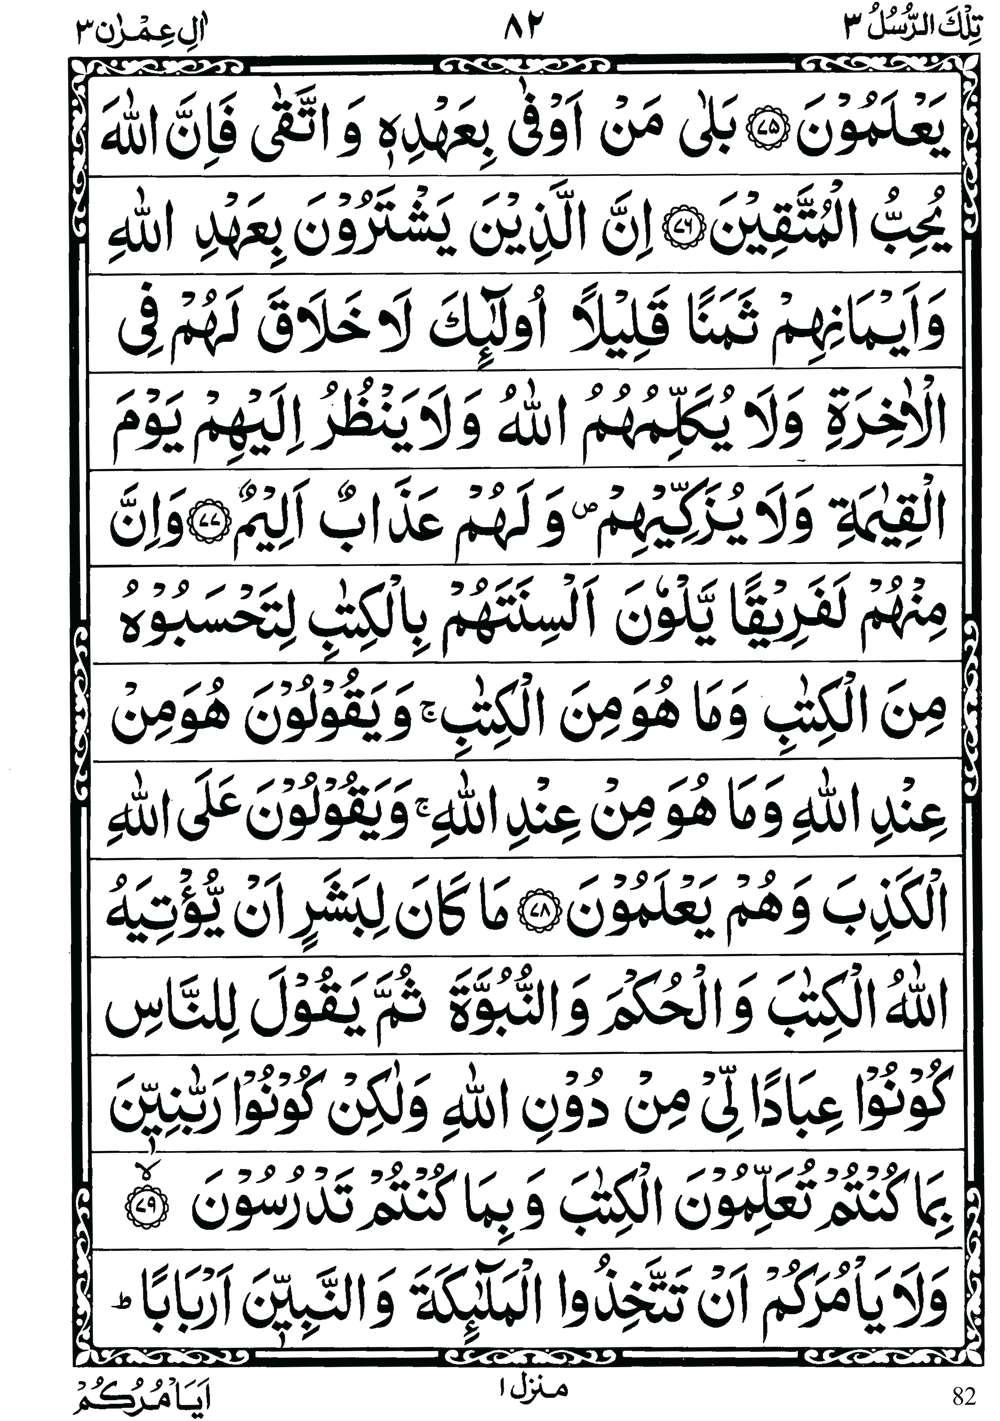 تِلْكَ الرُّسُلُ ٣ ٨٢ اٰلِ عِمْرٰن ٣
يَعْلَمُوْنَ ﴿٧٥﴾ بَلٰى مَنْ اَوْفٰى بِعَهْدِهٖ وَ اتَّقٰى فَاِنَّ اللّٰهَ
يُحِبُّ الْمُتَّقِيْنَ ﴿٧٦﴾ اِنَّ الَّذِيْنَ يَشْتَرُوْنَ بِعَهْدِ اللّٰهِ
وَاَيْمَانِهِمْ ثَمَنًا قَلِيْلًا اُولٰٓئِكَ لَا خَلَاقَ لَهُمْ فِى
الْاٰخِرَةِ وَلَا يُكَلِّمُهُمُ اللّٰهُ وَلَا يَنْظُرُ اِلَيْهِمْ يَوْمَ
الْقِيٰمَةِ وَلَا يُزَكِّيْهِمْ ۖ وَلَهُمْ عَذَابٌ اَلِيْمٌ ﴿٧٧﴾ وَاِنَّ
مِنْهُمْ لَفَرِيْقًا يَّلْوٗنَ اَلْسِنَتَهُمْ بِالْكِتٰبِ لِتَحْسَبُوْهُ
مِنَ الْكِتٰبِ وَمَا هُوَ مِنَ الْكِتٰبِ ۚ وَيَقُوْلُوْنَ هُوَ مِنْ
عِنْدِ اللّٰهِ وَمَا هُوَ مِنْ عِنْدِ اللّٰهِ ۚ وَيَقُوْلُوْنَ عَلَى اللّٰهِ
الْكَذِبَ وَهُمْ يَعْلَمُوْنَ ﴿٧٨﴾ مَا كَانَ لِبَشَرٍ اَنْ يُّؤْتِيَهُ
اللّٰهُ الْكِتٰبَ وَالْحُكْمَ وَالنُّبُوَّةَ ثُمَّ يَقُوْلَ لِلنَّاسِ
كُوْنُوْا عِبَادًا لِّىْ مِنْ دُوْنِ اللّٰهِ وَلٰكِنْ كُوْنُوْا رَبّٰنِيّٖنَ
بِمَا كُنْتُمْ تُعَلِّمُوْنَ الْكِتٰبَ وَبِمَا كُنْتُمْ تَدْرُسُوْنَ ۙ ﴿٧٩﴾
وَلَا يَاْمُرَكُمْ اَنْ تَتَّخِذُوا الْمَلٰٓئِكَةَ وَالنَّبِيّٖنَ اَرْبَابًا ؕ
منزل ١
اَيَاْمُرُكُمْ
82